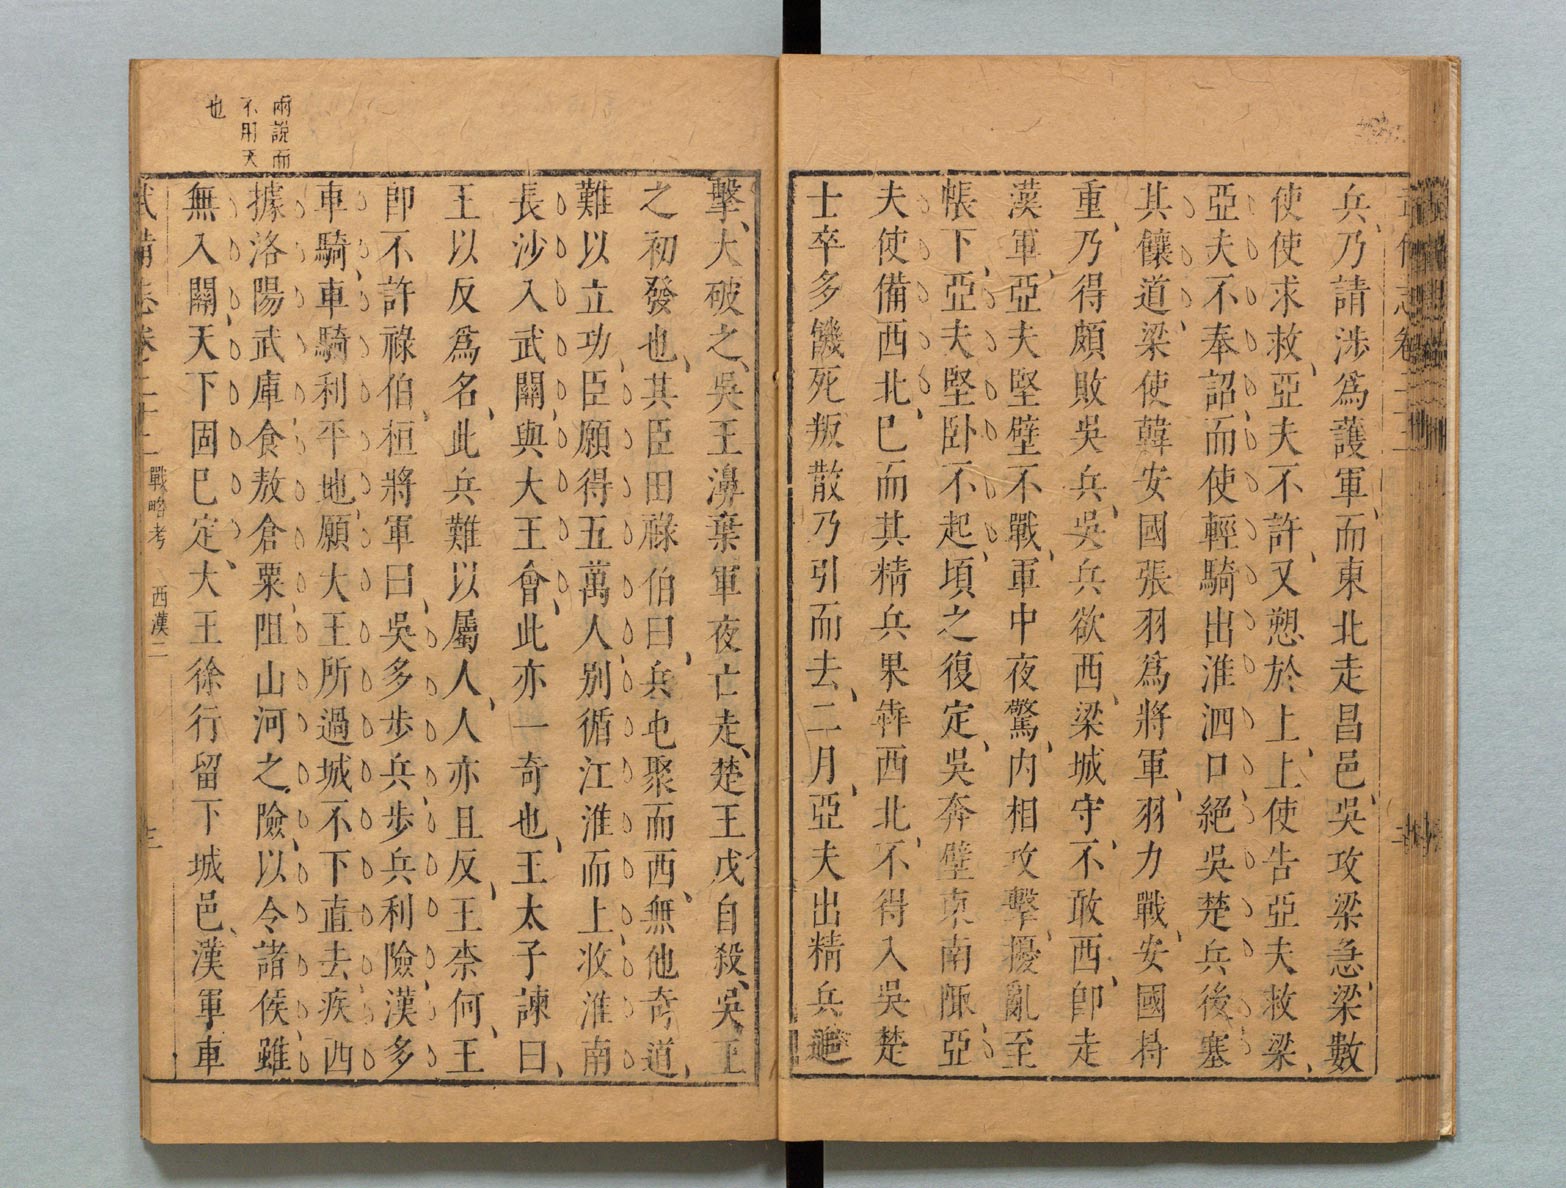 兵、乃請涉爲護軍、而東北走昌邑、吳攻梁急、梁數
使使求救、亞夫不許、又愬於上、上使告亞夫救梁、
亞夫不奉詔、而使輕騎出淮泗口、絕吳楚兵後、塞
其饟道、梁使韓安國張羽爲將軍、羽力戰、安國持
重、乃得頗敗吳兵、吳兵欲西、梁城守、不敢西、卽走
漢軍、亞夫堅壁不戰、軍中夜驚、内相攻擊、擾亂至
帳下、亞夫堅卧不起、頃之復定、吳奔壁東南陬、亞
夫使備西北、已而其精兵果犇西北、不得入、吳楚
士卒多饑死叛散、乃引而去、二月、亞夫出精兵追
擊、大破之、吳王濞棄軍夜亡走、楚王戊自殺、吳王
之初發也、其臣田祿伯曰、兵屯聚而西、無他奇道、
難以立功、臣願得五萬人、别循江淮而上、收淮南
長沙、入武關、與大王會、此亦一奇也、王太子諫曰、
王以反爲名、此兵難以屬人、人亦且反、王柰何、王
卽不許祿伯、桓將軍曰、吳多步兵、步兵利險、漢多
車騎、車騎利平地、願大王所過城不下直去、疾西
據洛陽武庫、食敖倉粟、阻山河之險、以令諸侯、雖
無入關、天下固已定、大王徐行留下城邑、漢軍車
兩說而
不用天
也
武備志卷二十二 戰略考 西漢二